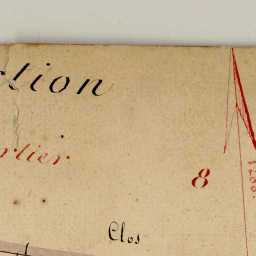 ction
rtier
8
Clos